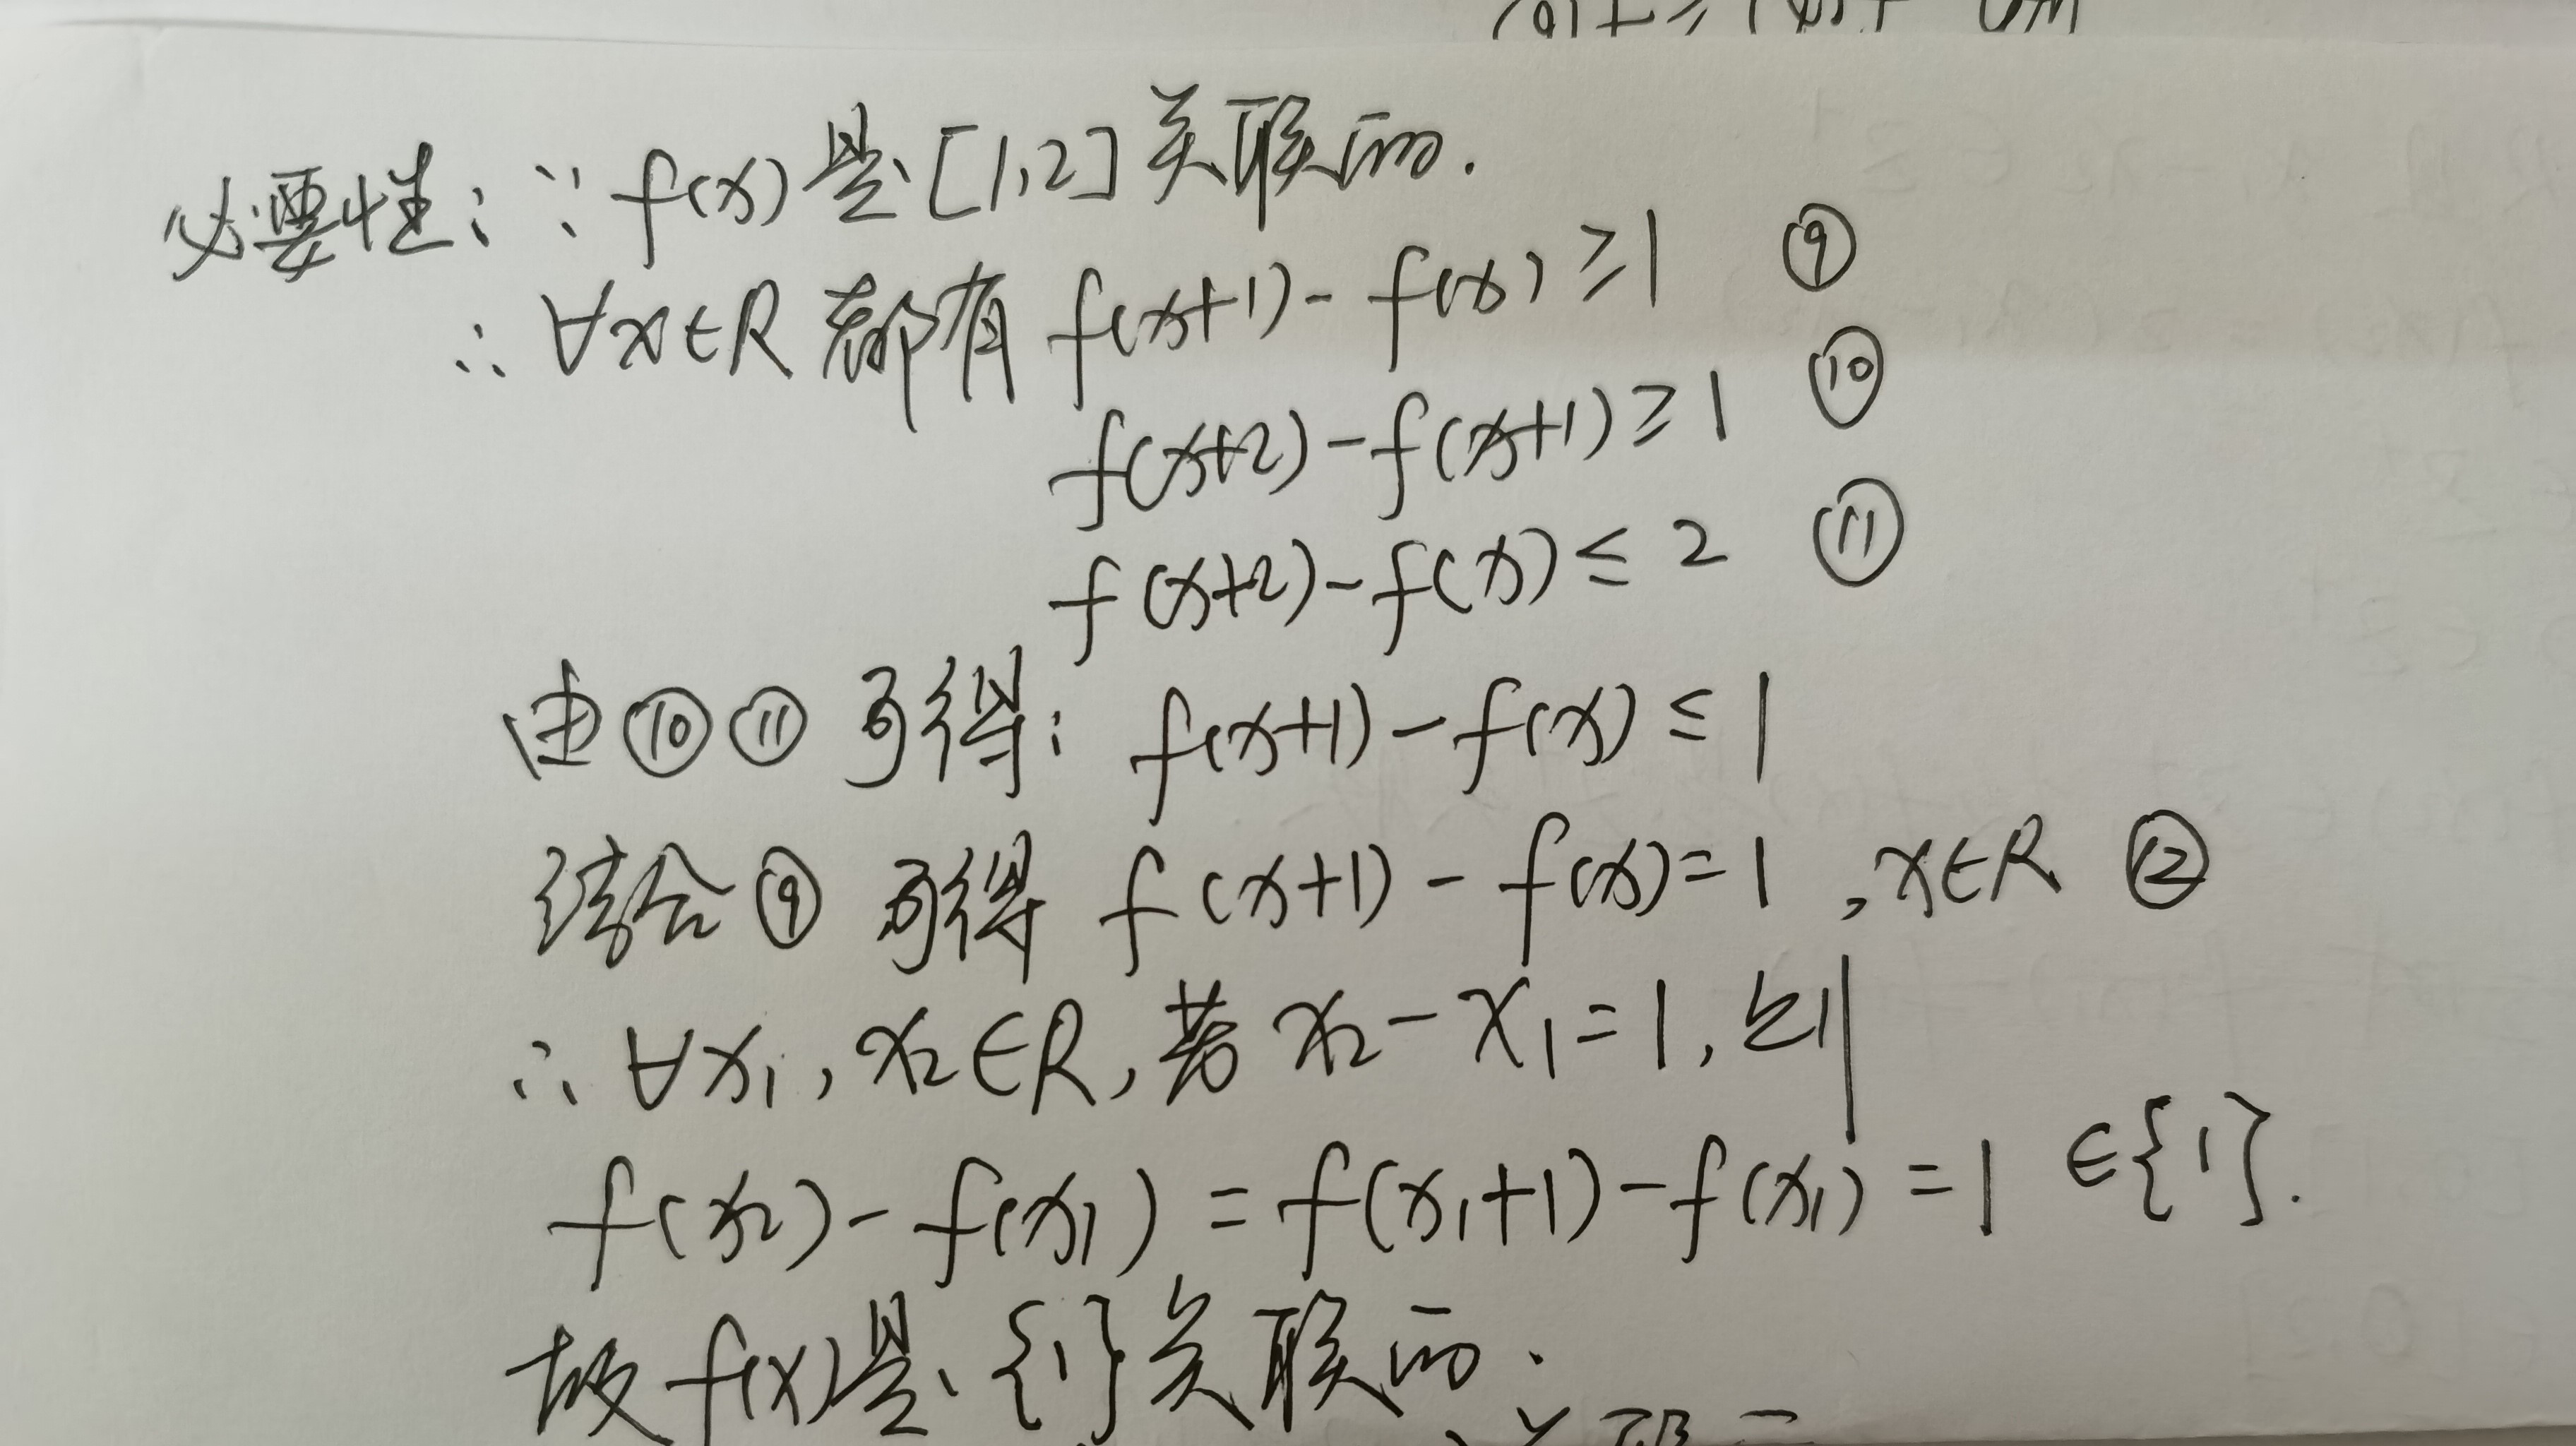 必要性：∵ f(x)是[1,2]关联的.
∴ ∀x∈R 都有 f(x+1)-f(x)≥1 ⑨
f(x+2)-f(x+1)≥1 ⑩
f(x+2)-f(x)≤2 ⑪
由⑩⑪可得: f(x+1)-f(x)≤1
结合⑨可得 f(x+1)-f(x)=1 ,x∈R ⑫
∴ ∀x₁,x₂∈R,若x₂-x₁=1,则
f(x₂)-f(x₁)=f(x₁+1)-f(x₁)=1 ∈{1}.
故f(x)是{1}关联的.